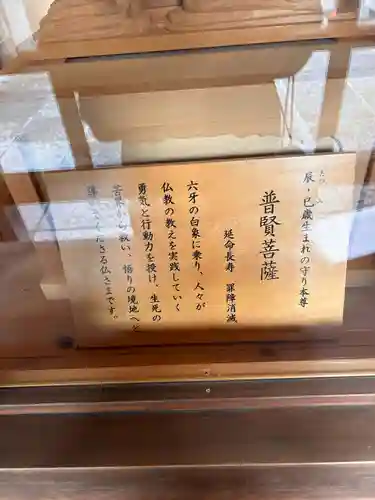 辰・巳歳生まれの守り本尊
普賢菩薩
延命長寿 罪障消滅
六牙の白象に乗り、人々が
仏教の教えを実践していく
勇気と行動力を授け、生死の
苦しみから救い、悟りの境地へと
導いてくださる仏さまです。